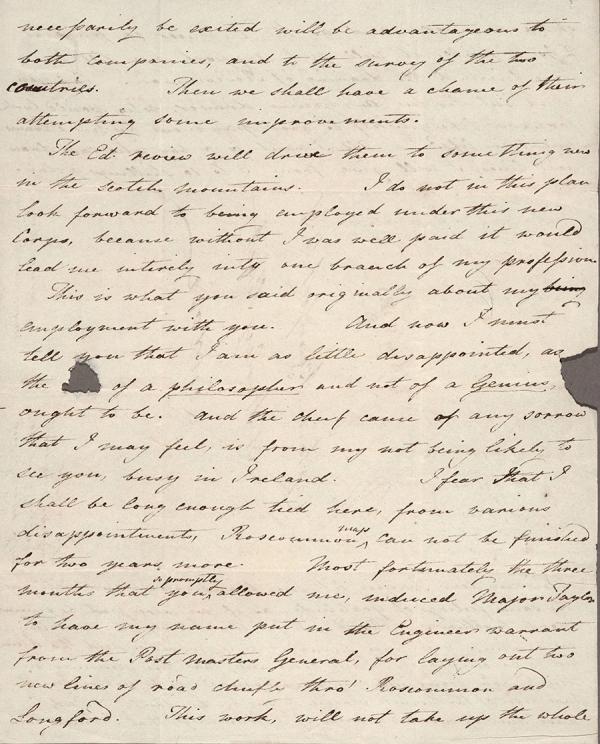 necessarily be exited will be advantageous to
both companies, and to the survey of the two
countries. Then we shall have a chance of their
attempting some improvements.
The Ed: review will drive them to something new
in the scotch mountains. I do not in this plan
look forward to being employed under this new
Corps, because without I was well paid it would
lead me intirely into one branch of my profession
This is what you said originally about my being
employment with you. And now I must
tell you that I am as little disappointed, as
the of a philosopher and not of a Genius,
ought to be. And the chief cause of any sorrow
that I may feel, is from my not being likely to
see you, busy in Ireland. I fear that I
shall be long enough tied here, from various
disappointments, Roscommon map can not be finished
for two years more. Most fortunately the three
months that you so promptly allowed me, induced Major Taylor
to have my name put in the Engineers warrant
from the Post Masters General, for laying out two
new lines of road chiefly thro' Roscommon and
Longford. This work, will not take up the whole